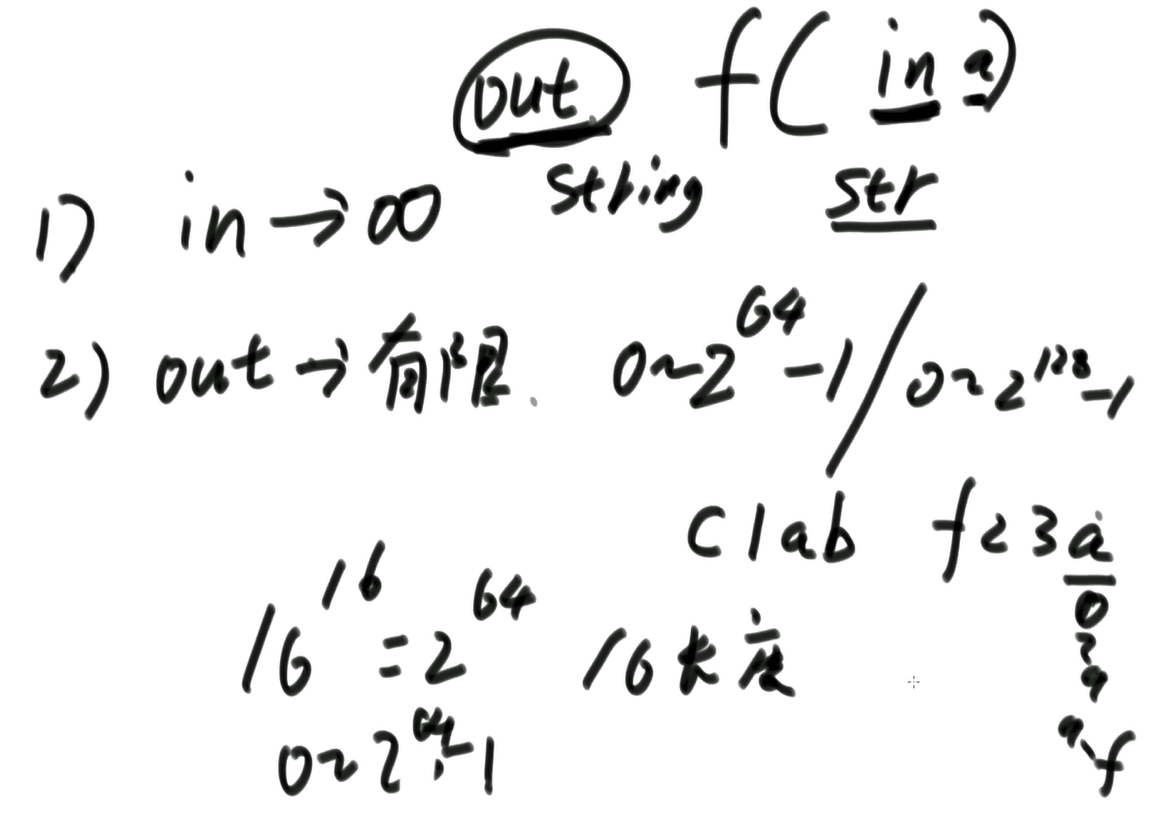 out f( in a)
string str
1) in → ∞
2) out → 有限. 0~2^64-1 / 0~2^128-1
c1ab f23a
0
~
9
a~f
16^16 = 2^64 16长度
0~2^64-1